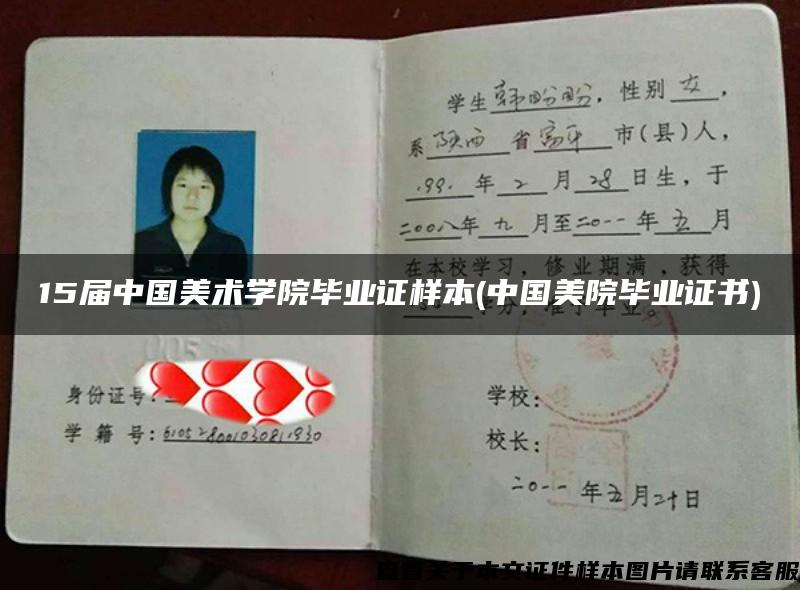 学生韩盼盼，性别女，
系陕西省富平市(县)人，
1991年2月28日生，于
二00八年九月至二0一一年五月
在本校学习，修业期满，获得
15届中国美术学院毕业证样本(中国美院毕业证书)
身份证号：
学籍号：
学校：
校长：
二0一一年五月二十日
查看关于本文证件样本图片请联系客服